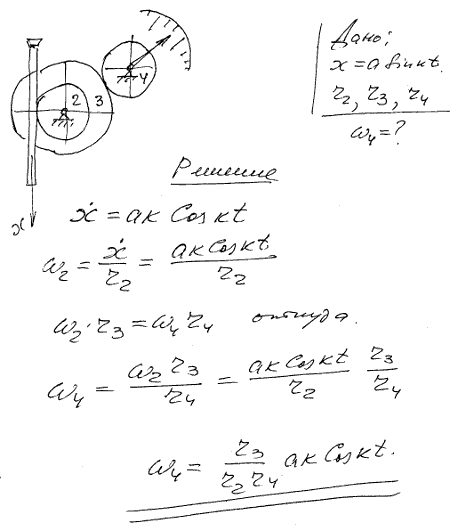 Дано:
x = a Sin кt.
r₂, r₃, r₄
ω₄ = ?
4
2 3
x
Решение
ẋ = aк Cos кt
ω₂ = ẋ/r₂ = aк Cos кt/r₂
ω₂·r₃ = ω₄ r₄ откуда.
ω₄ = ω₂ r₃/r₄ = aк Cos кt/r₂ r₃/r₄
ω₄ = r₃/r₂ r₄ aк Cos кt.